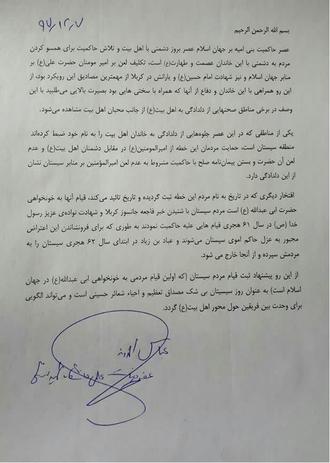 ۹۴/۱۲/۷
بسم الله الرحمن الرحیم
عصر حاکمیت بنی امیه بر جهان اسلام عصر بروز دشمنی با اهل بیت و تلاش حاکمیت برای همسو کردن
مردم به دشمنی با این خاندان عصمت و طهارت(ع) است، تکلیف لعن بر امیر مومنان حضرت علی(ع) بر
منابر جهان اسلام و نیز شهادت امام حسین(ع) و یارانش در کربلا از مهمترین مصادیق این رویکرد بود، از
این رو همراهی با این خاندان و دفاع از آنها که همراه با سختی هایی بود بصیرت بالایی می‌طلبید با این
وصف در برخی مناطق صحنهایی از دلدادگی به اهل بیت(ع) از جانب محبان اهل بیت مشاهده می‌شود.
یکی از مناطقی که در این عصر جلوه‌هایی از دلدادگی به خاندان اهل بیت را به نام خود ضبط کرده‌اند
منطقه سیستان است، حمایت مردمان این خطه از امیرالمومنین(ع) در مقابل دشمنان اهل بیت(ع) و عدم
لعن آن حضرت و بستن پیمان‌نامه صلح با حاکمیت مشروط به عدل لعن امیرالمؤمنین بر منابر سیستان نشان
از این دلدادگی دارد.
افتخار دیگری که در تاریخ به نام مردم این خطه ثبت گردیده و تاریخ تائید می‌کند، قیام آنها به خونخواهی
حضرت ابی عبدالله (ع) است مردم سیستان با شنیدن خبر فاجعه جانسوز کربلا و شهادت نواده‌ی عزیز رسول
خدا (ص) در سال ۶۱ هجری قیام هایی علیه حاکمیت نمودند به طوری که برای فرونشاندن این اعتراض
مجبور به عزل حاکم اموی سیستان می‌شوند و عباد بن زیاد در ابتدای سال ۶۲ هجری سیستان را به
مردمش سپرده و از آنجا خارج می شود.
از این رو پیشنهاد ثبت قیام مردم سیستان (که اولین قیام مردمی به خونخواهی ابی عبدالله(ع) در جهان
اسلام است) به عنوان روز سیستان بی شک مصداق تعظیم و احیاء شعائر حسینی است و می‌تواند الگویی
برای وحدت بین فریقین حول محور اهل بیت(ع) گردد.